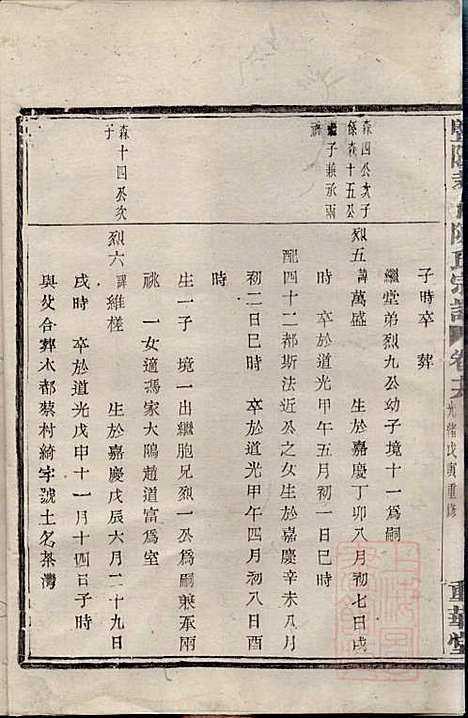 暨陽孝義陳氏宗譜 卷十六 光緒戊寅重修 重華堂
子時卒 葬
繼堂弟烈九公幼子境十一爲嗣
森四公次子
條森十五公
繼子兼承兩
祧
烈五 諱萬盛 生於嘉慶丁卯八月初七日戌
時 卒於道光甲午五月初一日巳時
配四十二都斯法近公之女生於嘉慶辛未八月
初二日巳時 卒於道光甲午四月初八日酉
時
生一子 境一出繼胞兄烈一公爲嗣兼承兩
祧 一女適馮家大隖趙道富爲室
森十四公次
子
烈六 諱維槎 生於嘉慶戊辰六月二十九日
戌時 卒於道光戊申十一月十四日子時
與父合葬本都蔡村綺字號土名茶灣